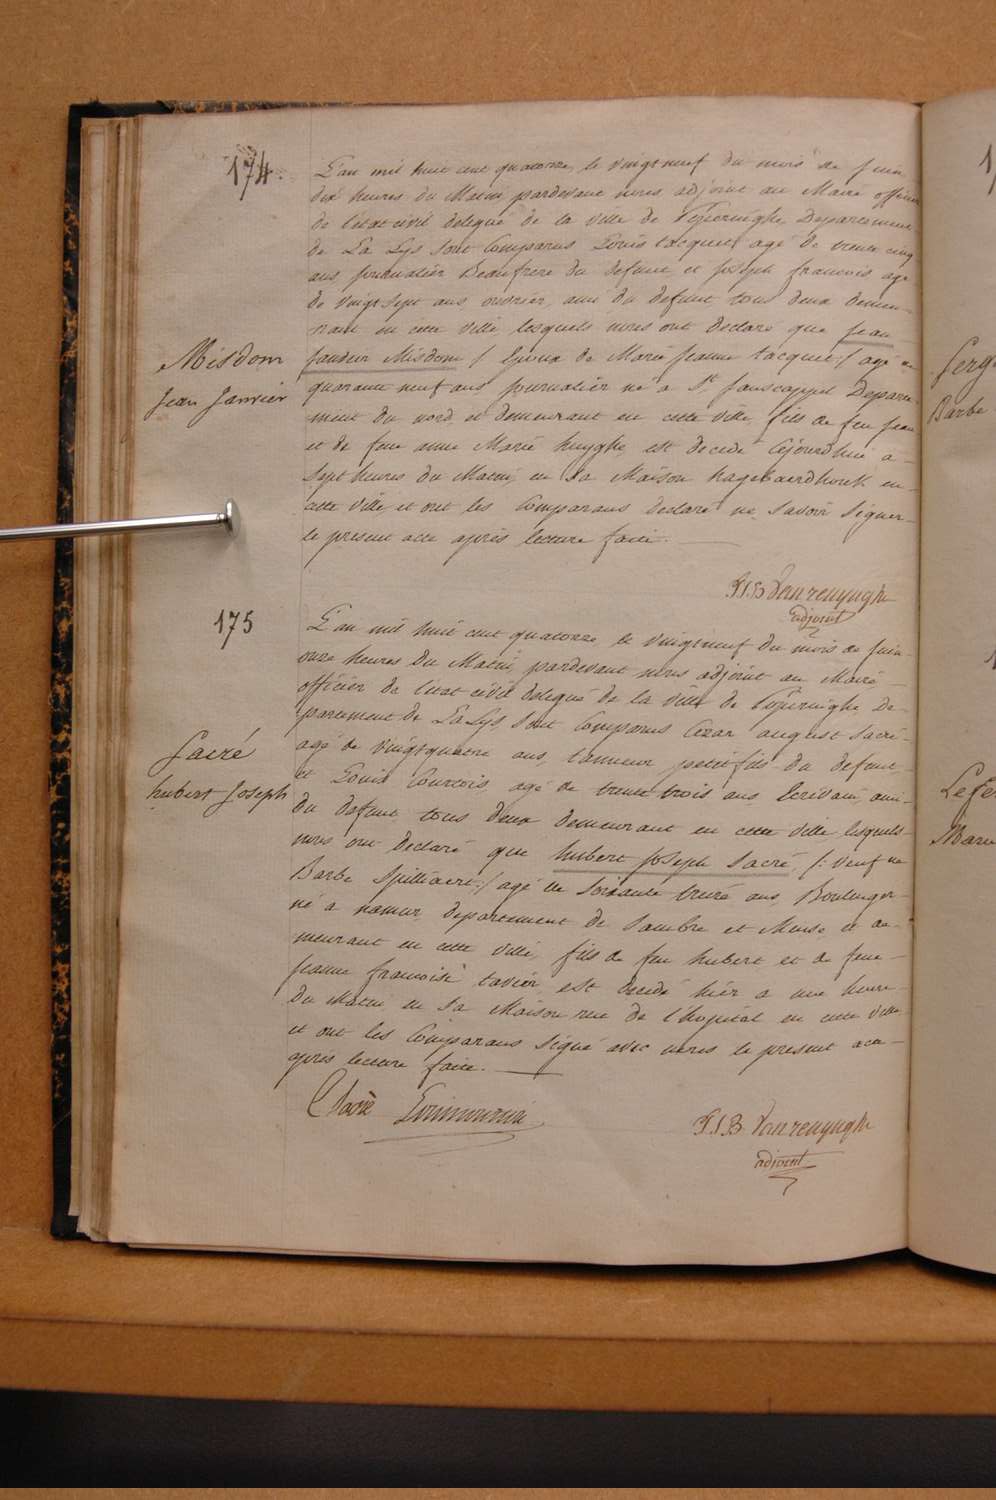 174.
L'an mil huit cent quatorze, le vingtneuf du mois de Juin
dix heures du Matin, pardevant nous adjoint au Maire officier
de l'état civil delegué de la ville de Poperinghe, Departement
de La Lys sont Comparus Louis tacquet, agé de trente cinq
ans, journalier Beaufrere du defunt, et joseph francois agé
de vingt sept ans ouvrier, ami du defunt tous deux demeu-
rant en cette ville, lesquels nous ont declaré que jean
janvier Misdom /: Epoux de Marie jeanne tacquet :/ agé de
quarante neuf ans, journalier né à St. janscappel Departe-
ment du nord, et demeurant en cette ville, fils de feu jean
et de feue anne Marie huyghe, est decedé Cejourdhui a
sept heures du Matin, en sa Maison hagebaerdhouk en
cette ville et ont les Comparans declaré ne savoir Signer
le present acte après lecture faite.
Misdom
Jean Janvier
F.S.B Vanrenynghe
adjoint
175
L'an mil huit cent quatorze, le vingtneuf du mois de Juin
onze heures du Matin, pardevant nous adjoint au Maire
officier de l'état civil delegué de la ville de Poperinghe, de-
partement de La Lys, sont Comparus Cezar august Sacré
agé de vingtquatre ans, tanneur petit fils du defunt
et Louis Courtois, agé de trente trois ans Ecrivain, ami
du defunt, tous deux demeurant en cette ville lesquels
nous ont declaré que hubert joseph Sacré, /: veuf de
Barbe Spilliaert :/ agé de soixante treize ans, Boulanger
né a namur, departement de Sambre et Meuse et de-
meurant en cette ville, fils de feu hubert et de feue
jeanne francoise tavier, est decedé hier a une heure
du Matin, en sa Maison rue de l'hopital en cette ville
et ont les Comparans signé avec nous le present acte
après lecture faite.
Sacré
hubert Joseph
C Sacré
F.S.B. Vanrenynghe
adjoint
Barbe